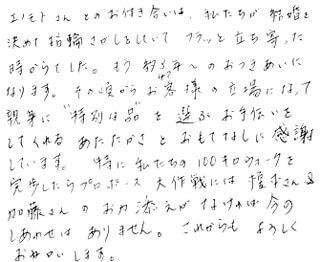 エノモトさんとのお付き合いは、私たちが結婚を
決めて指輪さがしをしていてフラッと立ち寄った
時からでした。もう約3年〜のおつきあいに
なります。その度からお客様の立場になって
親身に"特別な品"を選ぶお手伝いを
してくれるあたたかさとおもてなしに感謝
しています。特に私たちの100キロウォークを
完歩したらプロポーズ大作戦には さん&
加藤さんのお力添えがなければ今の
しあわせはありません。これからもよろしく
お願いします。